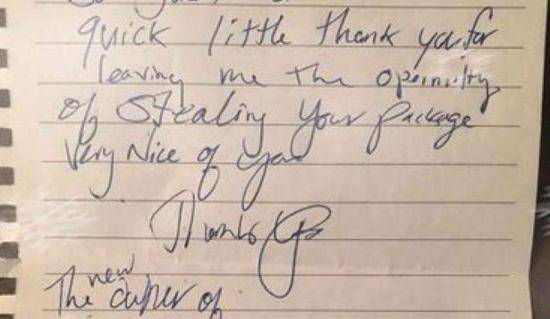 quick little thank you for
leaving me the
of stealing your package
Very Nice of you
Thanks
The new of